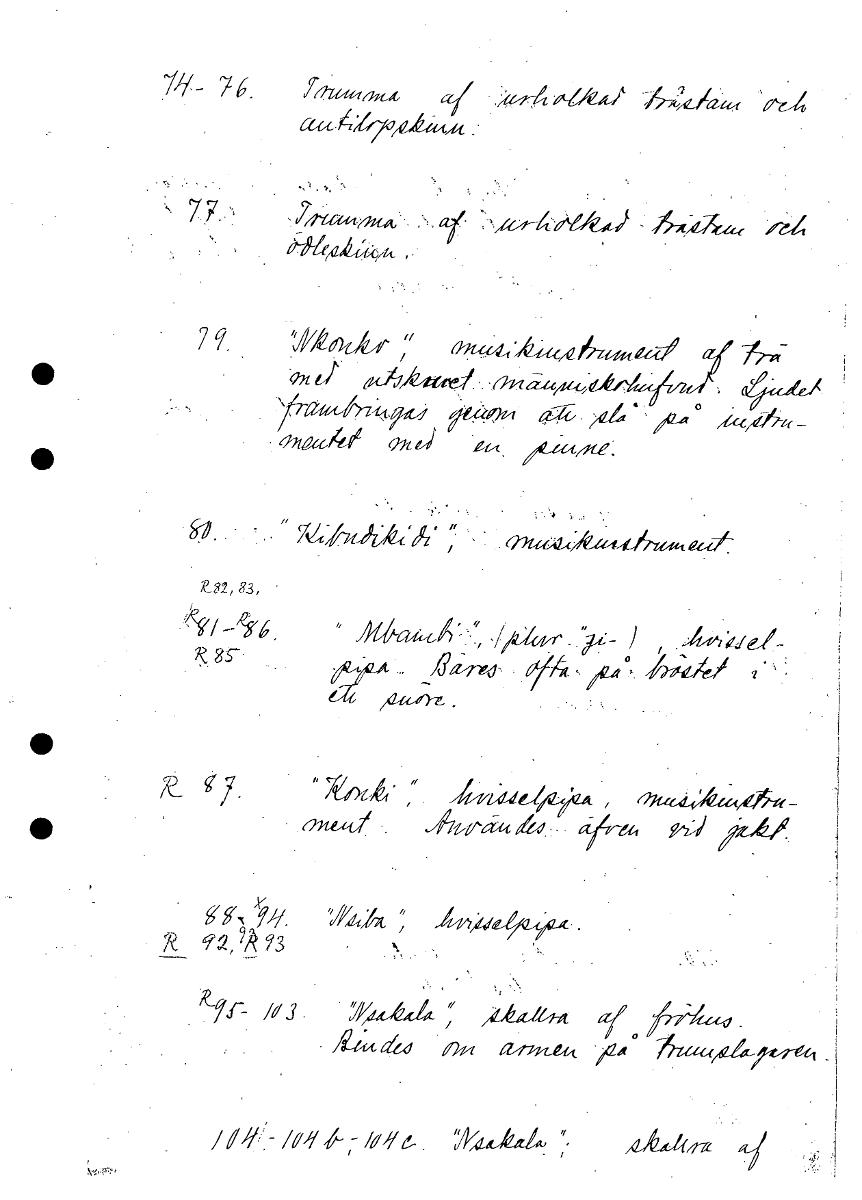 74-76. Trumma af urholkad trästam och
antilopskinn.
77. Trumma af urholkad trästam och
ödleskinn.
79. "Nkonko", musikinstrument af trä
med utskuret människohufvud. Ljudet
frambringas genom att slå på instru-
mentet med en pinne.
80. "Kibudikidi", musikinstrument.
R82, 83,
R81-R86. "Mbambi", (plur "zi-), hvissel-
R85 pipa. Bäres ofta på bröstet i
ett snöre.
R 87. "Konki", hvisselpipa, musikinstru-
ment. Användes äfven vid jakt.
88-x94. "Nsiba", hvisselpipa.
R 92, R93
R95-103. "Nsakala", skallra af fröhus.
Bindes om armen på trumslagaren.
104-104b-104c "Nsakala", skallra af